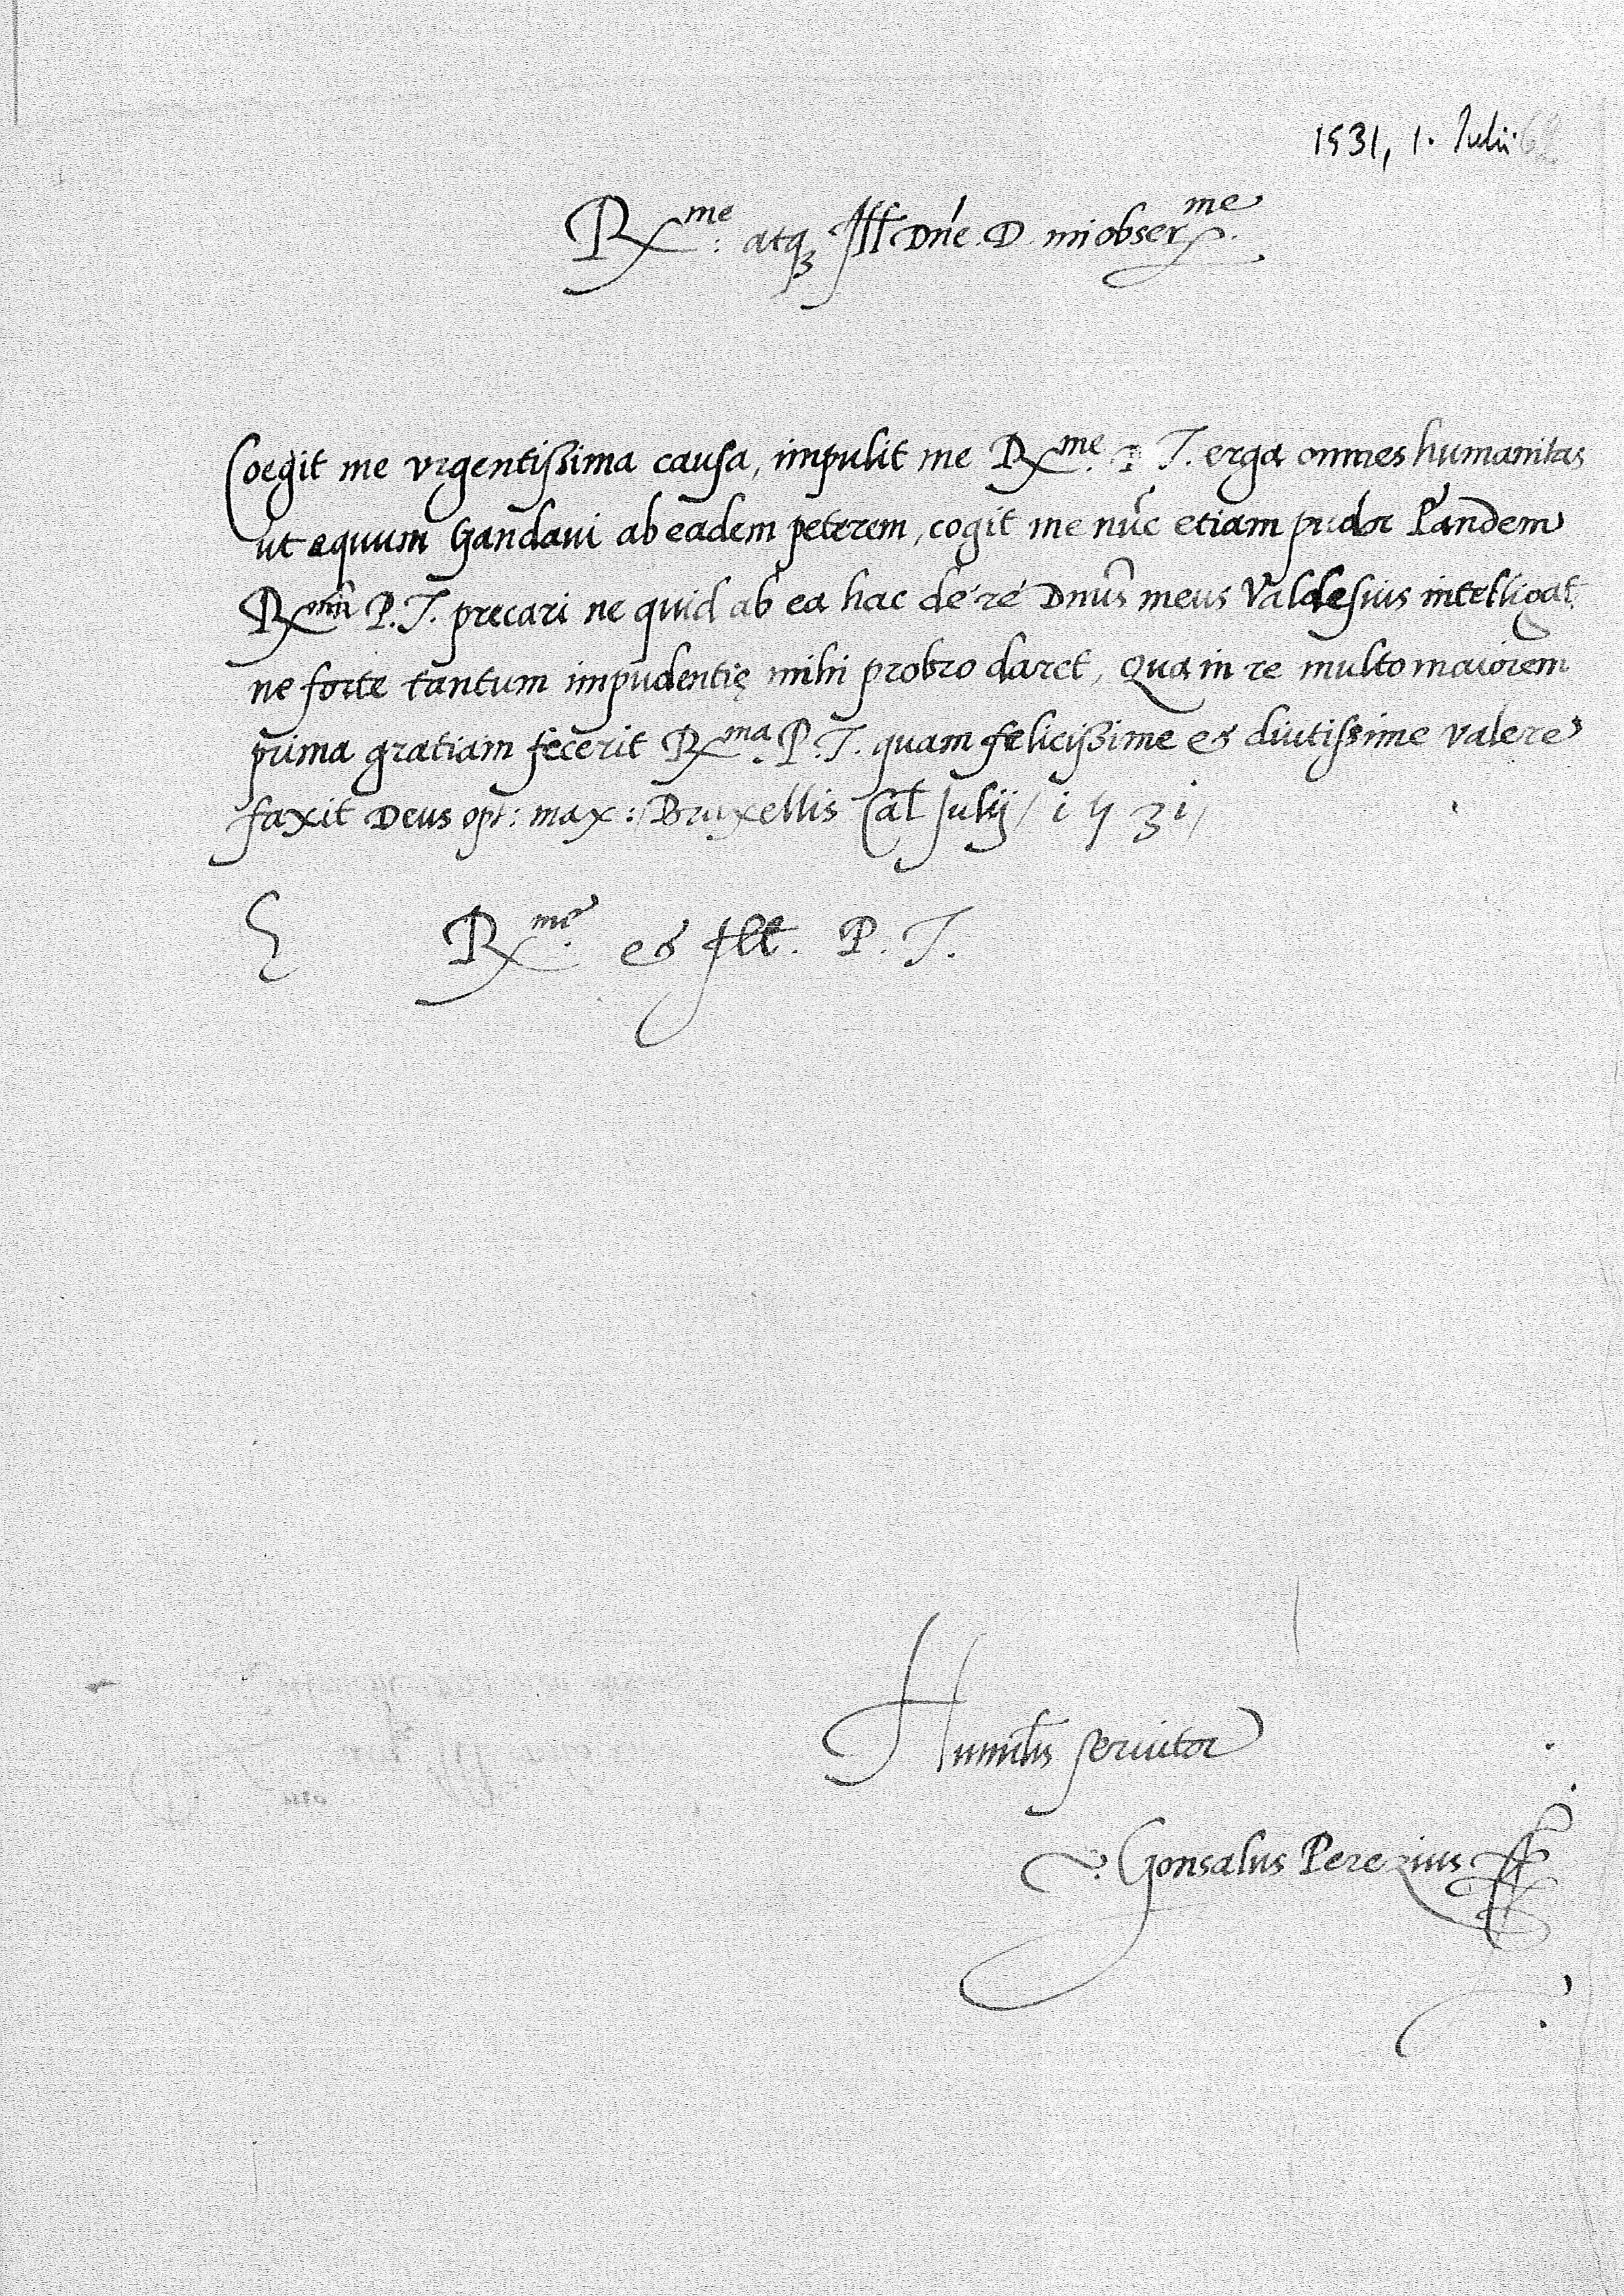 1531, 1. Julii
Rx^me: atq; Ill Dn̄e. D. mi obser^me.
Coegit me vrgentissima causa, impulit me Rx^me. P. T. erga omnes humanitas
ut equum Gandaui ab eadem peterem, cogit me nūc etiam pudor Eandem
Rx^mā P. T. precari ne quid ab ea hac de re Dnūs meus Valdesius intelligat
ne forte tantum impudentię mihi probro daret, Qua in re multo maiorem
prima gratiam fecerit Rx^ma. P. T. quam felicissime et diutissime valere
faxit Deus opt: max: Bruxellis Cal Julij / 1531 /
E Rx^me. et Ill. P. T.
Humilis seruitor
Gonsalus Perezius